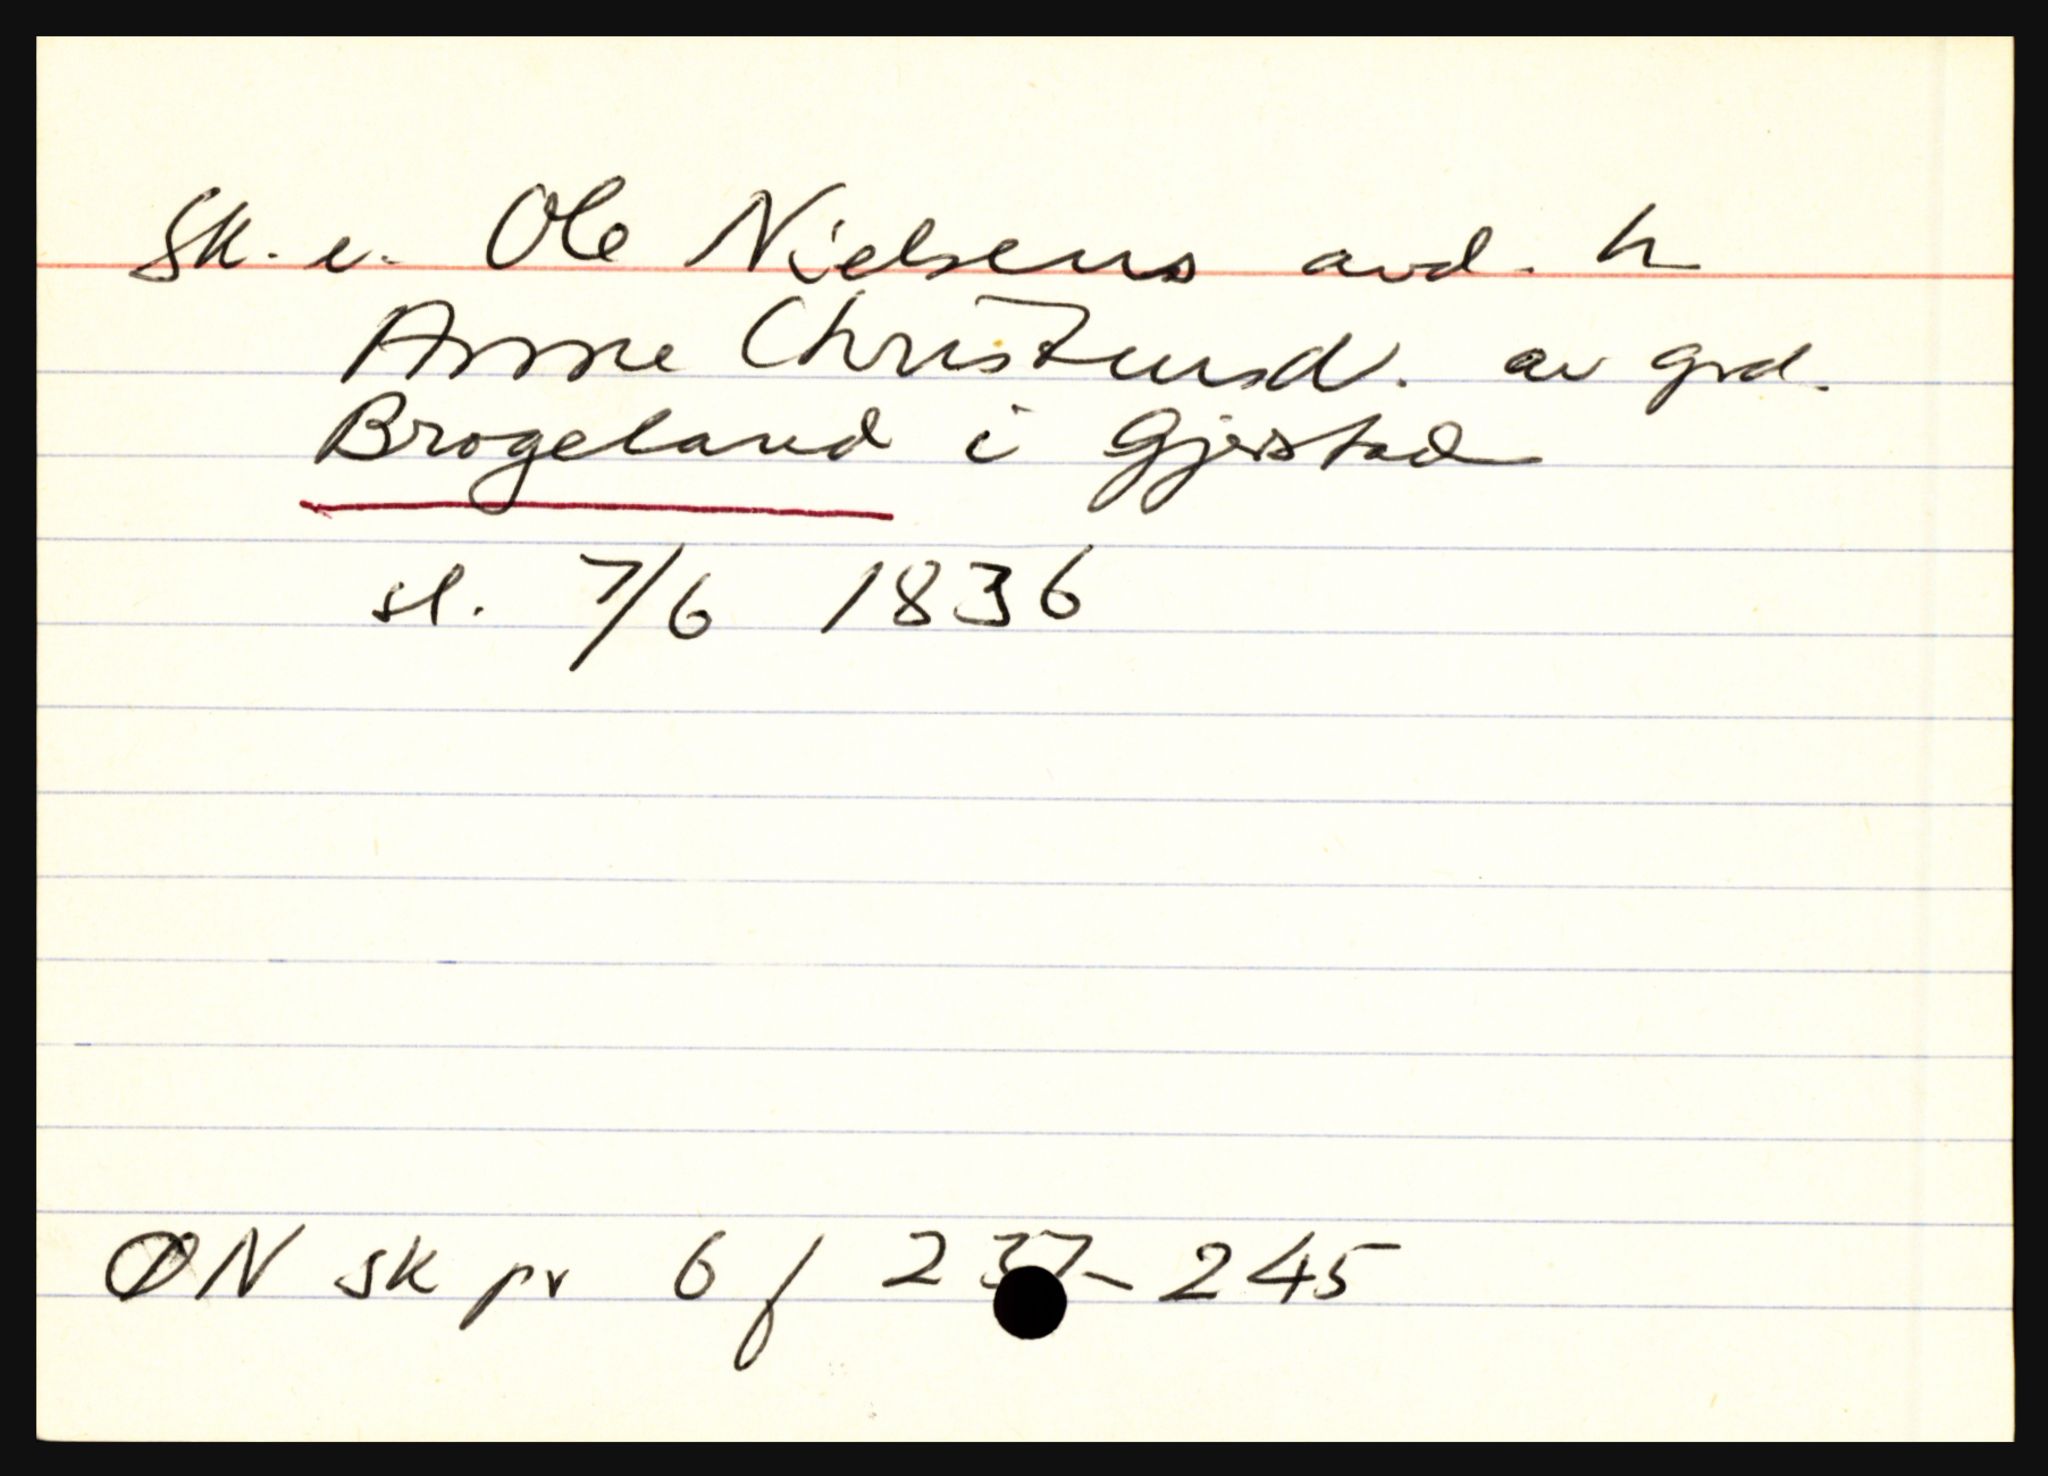 Sk. e. Ole Nielsens avd. h
Anne Christensd. av grd.
Brogeland i Gjerstad
sl. 7/6 1836
ØN sk pr 6 f 237-245